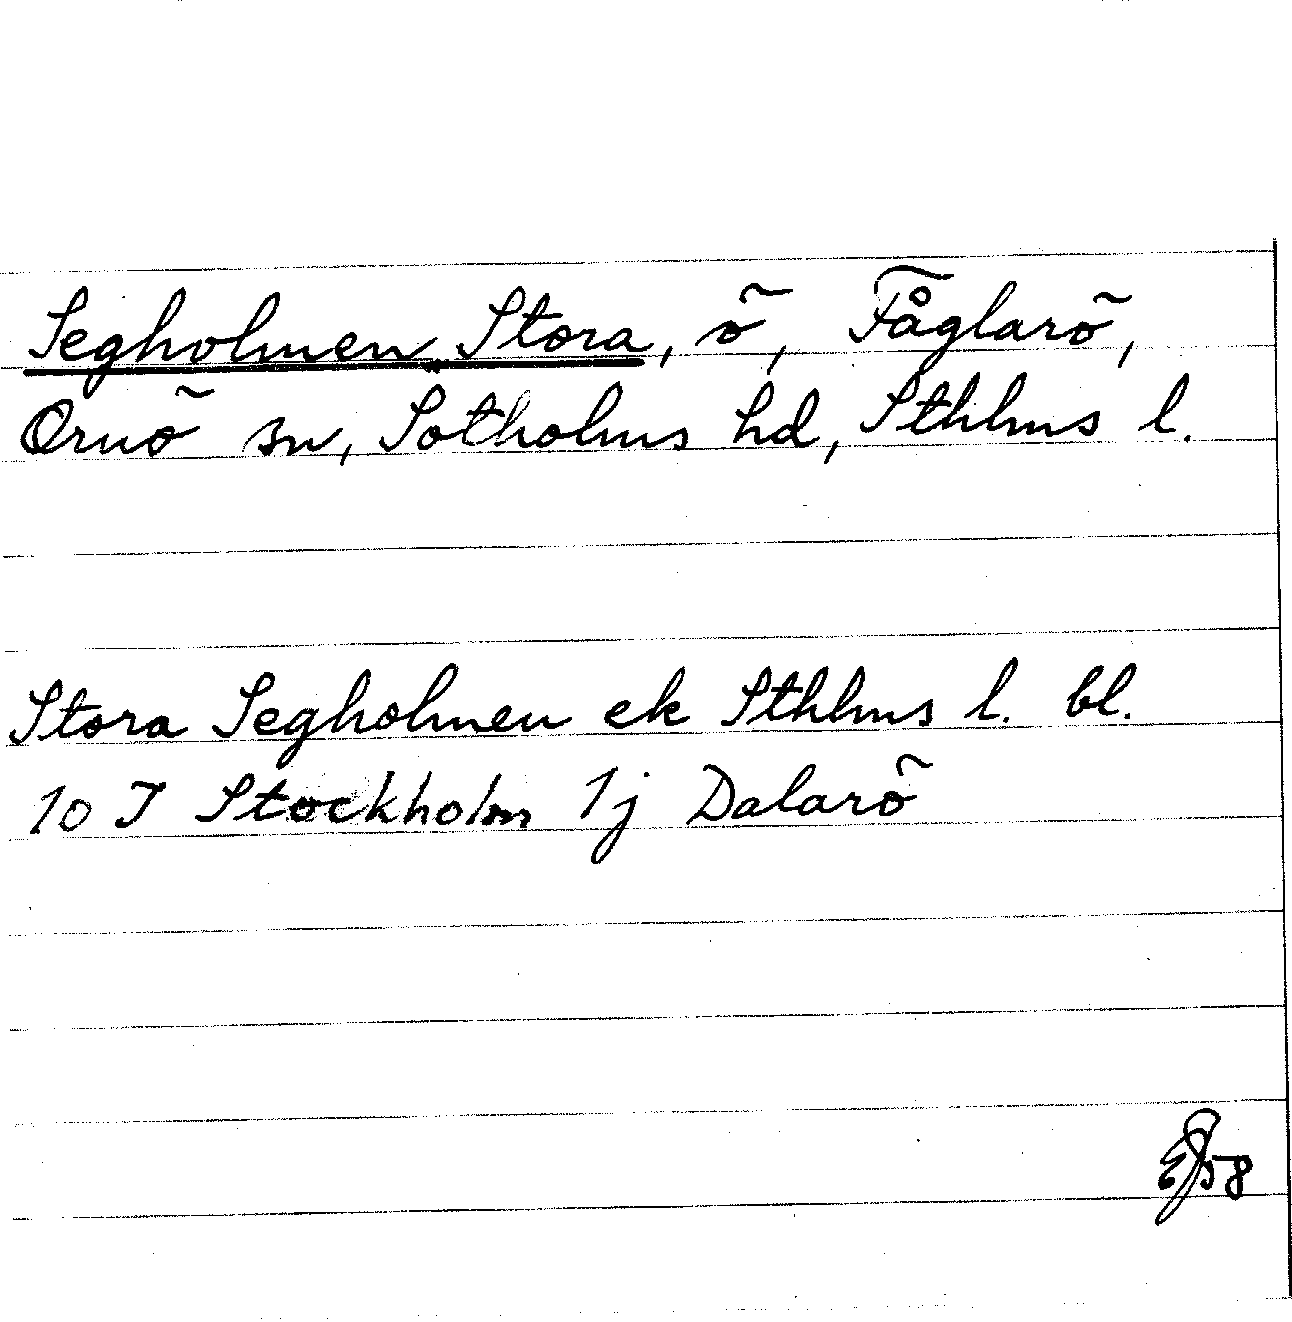 Segholmen, Stora, ö, Fåglarö,
Ornö sn, Sotholms hd, Sthlms l.
Stora Segholmen ek Sthlms l. bl.
10 I Stockholm 1j Dalarö
58